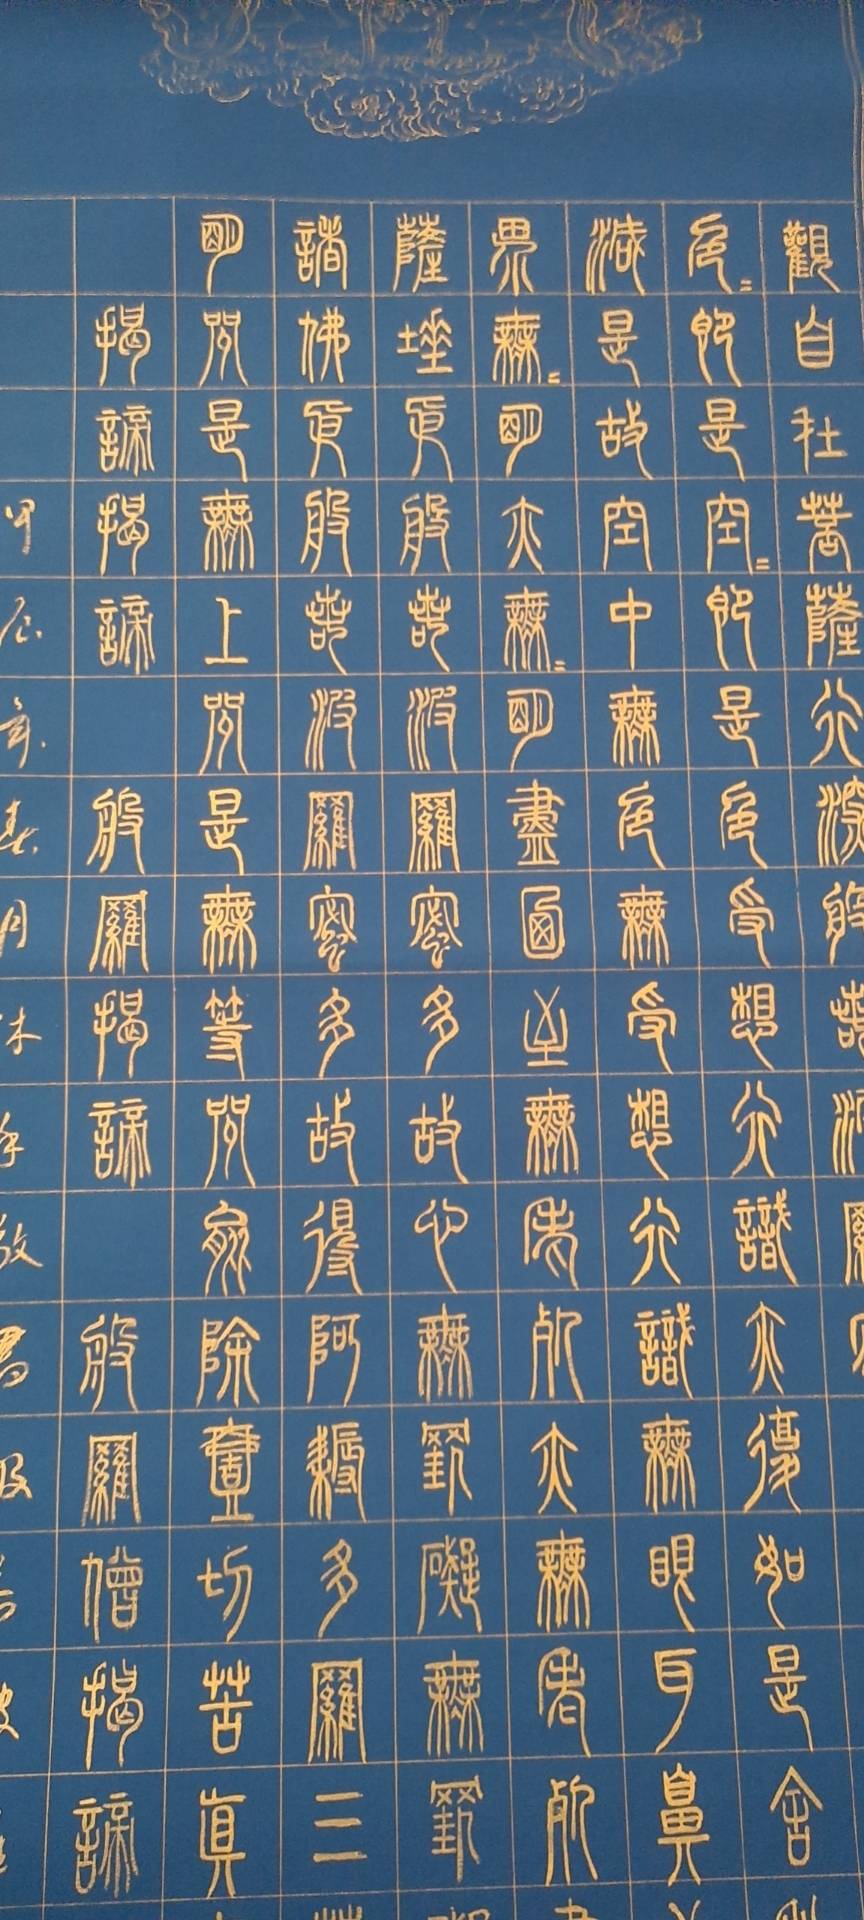 觀自在菩薩行深般若波羅
色=即是空=即是色受想行識亦復如是舍
減是故空中無色無受想行識無眼耳鼻
界無=明亦無=明盡乃至無老死亦無老死
薩埵依般若波羅蜜多故心無罣礙無罣
諸佛依般若波羅蜜多故得阿耨多羅三藐
明咒是無上咒是無等咒能除壹切苦真
揭諦揭諦 般羅揭諦 般羅僧揭諦
甲辰 春月沐手敬書